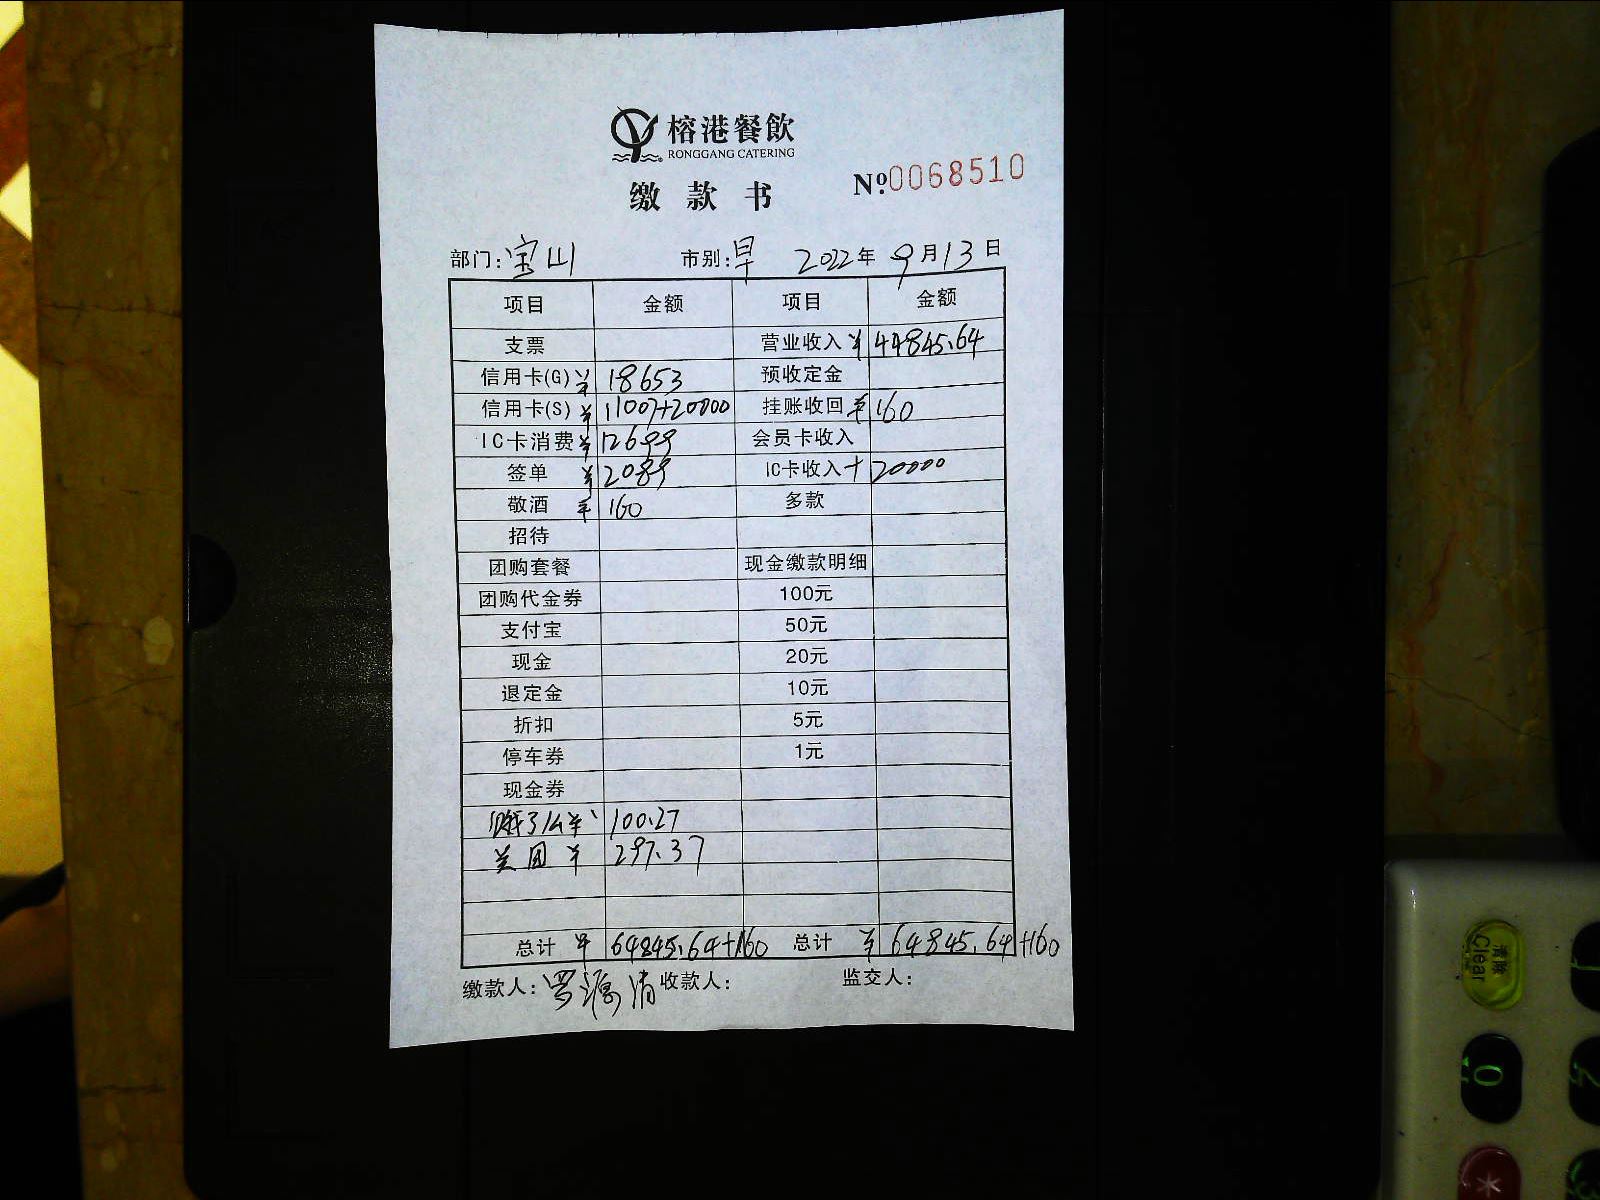 榕港餐飲
RONGGANG CATERING
缴款书 Nº 0068510
部门:宝山 市别:早 2022年 9月13日
项目 金额 项目 金额
支票 营业收入 ¥ 44845.64
信用卡(G) ¥ 18653 预收定金
信用卡(S) ¥ 11007+20000 挂账收回 ¥ 160
IC卡消费 ¥ 12699 会员卡收入
签单 ¥ 2089 IC卡收入 + 20000
敬酒 ¥ 160 多款
招待
团购套餐 现金缴款明细
团购代金券 100元
支付宝 50元
现金 20元
退定金 10元
折扣 5元
停车券 1元
现金券
饿了么 ¥ 100.27
美团 ¥ 297.37
总计 ¥ 64845.64+160 总计 ¥ 64845.64+160
缴款人: 罗 清 收款人: 监交人:
清除
Clear
0
2
*